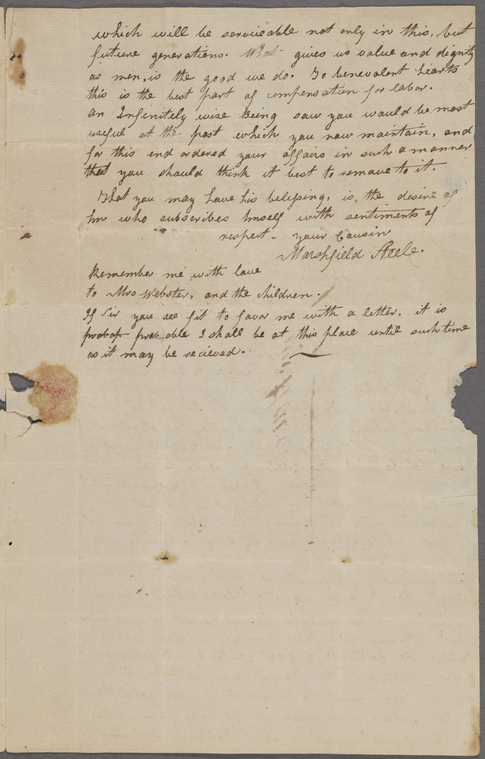 which will be serviceable not only in this, but
future generations. What gives us value and dignity
as men, is the good we do. To benevolent hearts
this is the best part of compensation for labor.
an Infinitely wise Being saw you would be most
useful at the post which you now maintain, and
for this end ordered your affairs in such a manner
that you should think it best to remove to it.
That you may have his belessing, is the desire of
him who subscribes himself with sentiments of
respect - your Cousin
Marshfield Steele.
Remember me with love
to Mrs Webster, and the children.
If Sir you see fit to favor me with a letter, it is
probable I shall be at this place until such time
as it may be recieved.